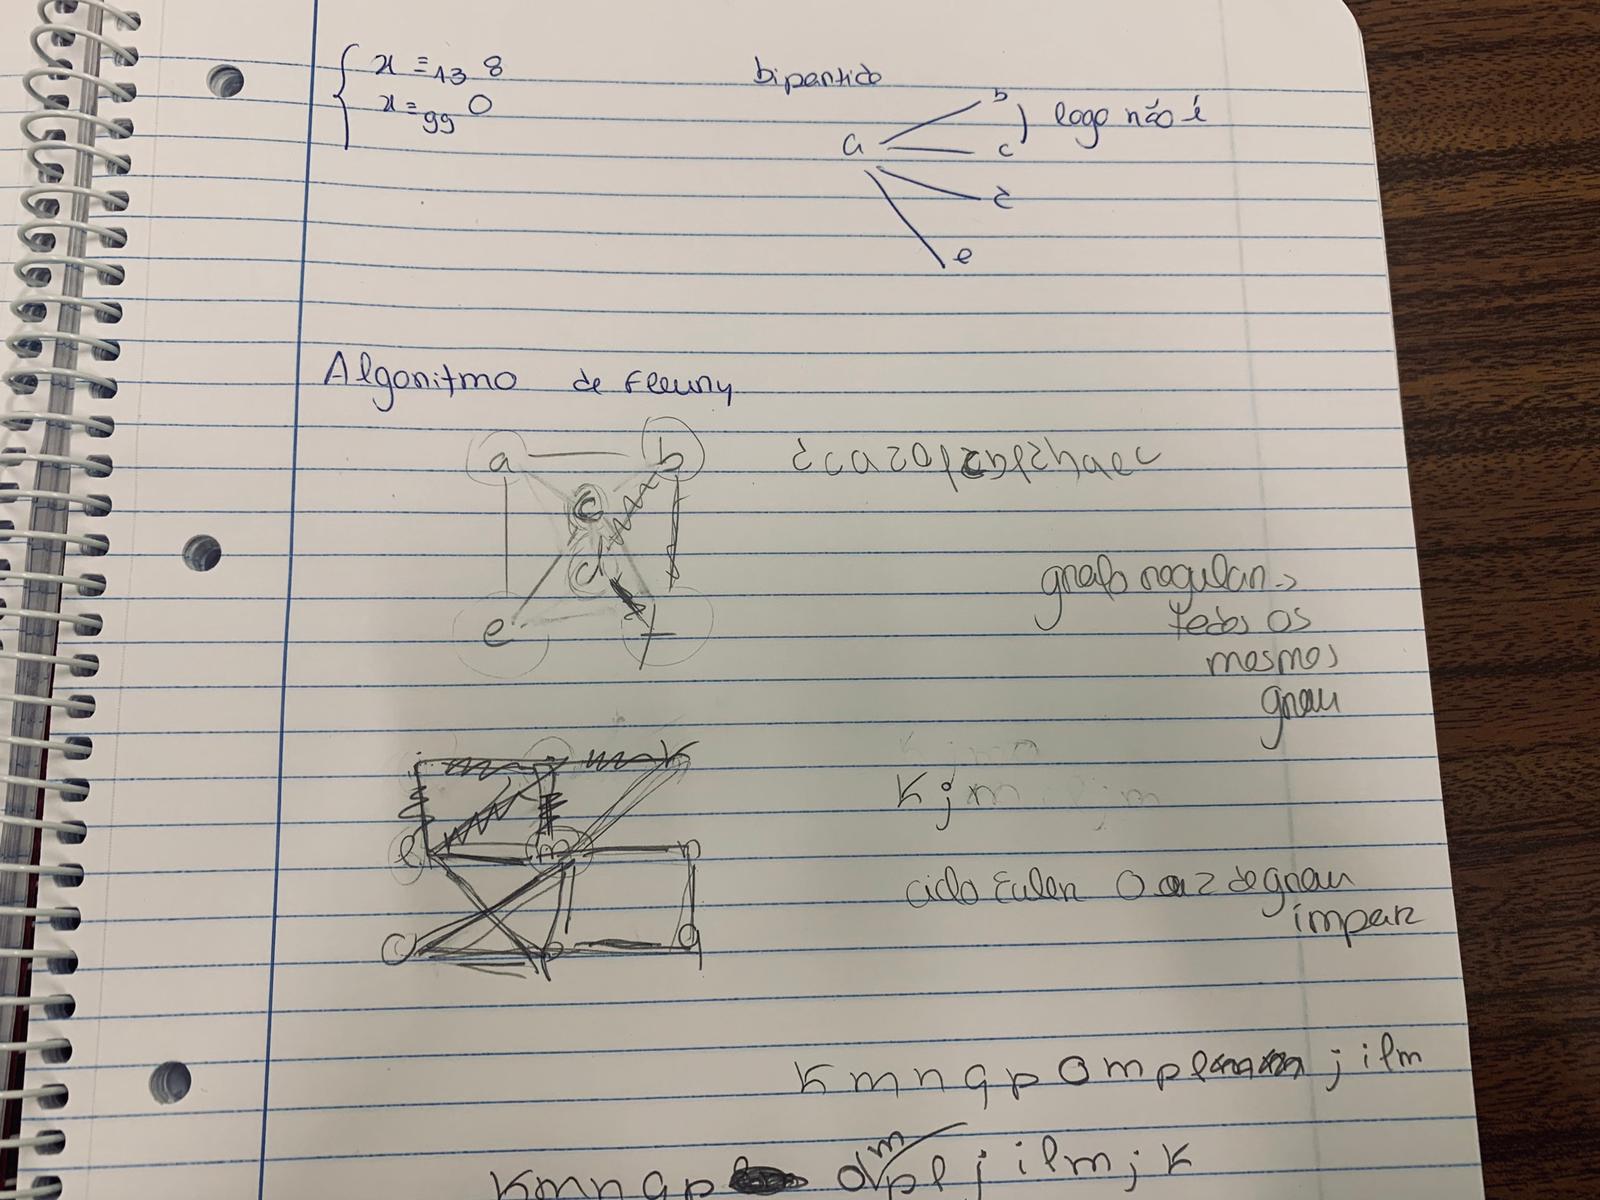 x ≡₁₃ 8
x ≡₉₉ 0
bipartido
b
a
c
logo não é
d
e
Algoritmo de Fleury
a b
c
d
e f
grafo regular ->
todos os
mesmos
grau
k
l m n
o p q
K j m
ciclo Euler 0 ou 2 de grau
impar
K m n q p o m p l j i l m
K m n q p o m p l j i l m j K